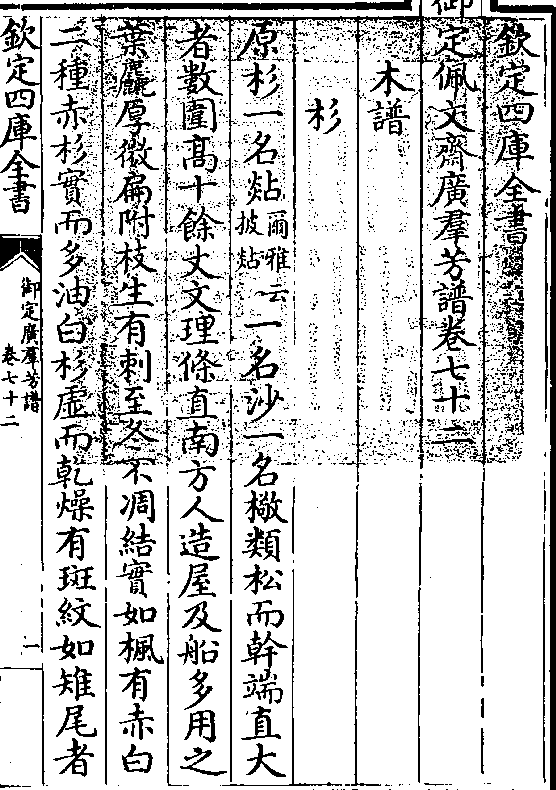 欽定四庫全書
御定佩文齋廣羣芳譜卷七十二
木譜
杉
原杉一名煔爾雅云披煔一名沙一名橵類松而幹端直大
者數圍髙十餘丈文理條直南方人造屋及船多用之
葉麤厚微扁附枝生有刺至冬不凋結實如楓有赤白
二種赤杉實而多油白杉虛而乾燥有斑紋如雉尾者
欽定四庫全書
御定廣羣芳譜
卷七十二
一